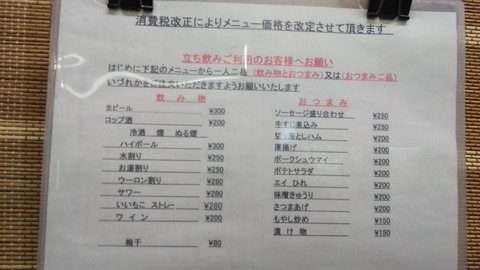 消費税改正によりメニュー価格を改定させて頂きます
立ち飲みご利用のお客様へお願い
はじめに下記のメニューから一人二品(飲み物とおつまみ)又は(おつまみ二品)
いづれかをご注文いただきますようお願いいたします
飲み物
生ビール ¥300
コップ酒 ¥200
冷酒 燗 ぬる燗
ハイボール ¥300
水割り ¥250
お湯割り ¥250
ウーロン割り ¥280
サワー ¥280
いいちこ ストレー ¥280
ワイン ¥200
梅干 ¥80
おつまみ
ソーセージ盛り合わせ ¥250
牛すじ煮込み ¥250
切り落としハム ¥200
厚揚げ ¥200
ポークシュウマイ ¥200
ポテトサラダ ¥200
エイ ひれ ¥200
味噌きゅうり ¥200
さつまあげ ¥200
もやし炒め ¥150
漬け物 ¥150